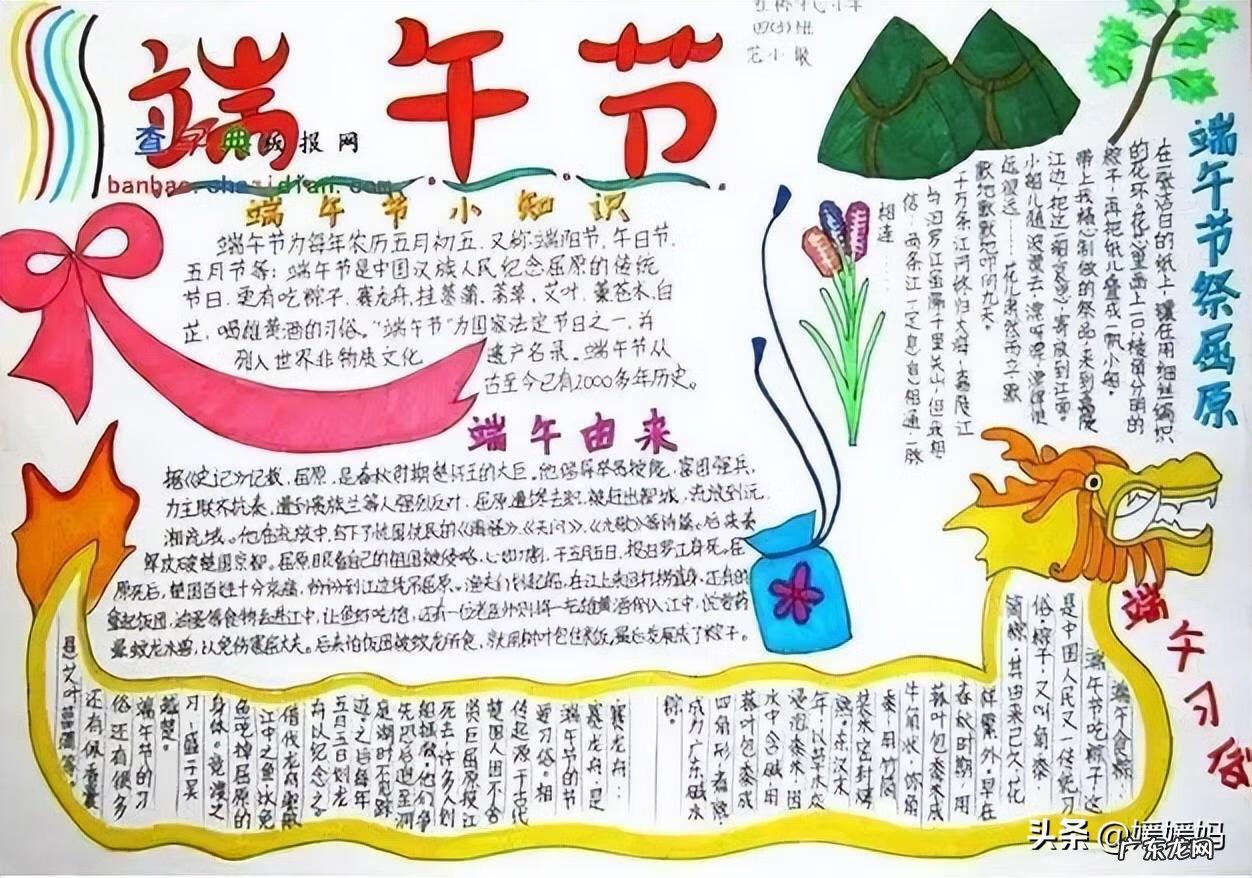 端午节
查字典板报网
四(3)班
端午节小知识
端午节为每年农历五月初五，又称端阳节，午日节，
五月节等；端午节是中国汉族人民纪念屈原的传统
节日，更有吃粽子，赛龙舟，挂菖蒲，蒿草，艾叶，薰苍术，白
芷，喝雄黄酒的习俗。“端午节”为国家法定节日之一，并
列入世界非物质文化遗产名录。端午节从
古至今已有2000多年历史。
端午由来
据《史记》记载，屈原，是春秋时期楚怀王的大臣。他倡导举贤授能，富国强兵，
力主联齐抗秦，遭到贵族
屈原遭
去职，被赶出都城，流放到沅，
湘流域。他在流放中，写下了忧国忧民的《离骚》、《天问》、《九歌》等诗篇。后来秦
军攻破楚国京都。屈原眼看自己的祖国被侵略，心如刀割，于五月五日，投汨罗江身死。屈
原死后，楚国百姓十分哀痛，纷纷到江边凭吊屈原。渔夫们划起船，在江上来回打捞真身，还有的
拿起饭团，鸡蛋等食物丢进江中，让鱼虾吃饱，还有一位老医师则将一坛雄黄酒倒入江中，说要药
晕蛟龙水兽，以免伤害屈大夫。后来怕饭团被蛟龙所食，就用树叶包住米饭，最后发展成了粽子。
端午节祭屈原
在一张洁白的纸上，镶在用细丝编织
的花环。花芯里画上一
粽子，再把纸儿叠成一帆小船，
带上我精心制做的祭品，来到高陵
江边，把这一船哀思，寄放到江面。
小船儿随波漫去，漂呀漂，漂得很
远很远……
歌地歌歌地叩问九天。
千万条江河终归大海，嘉陵江
与汨罗江虽隔千里关山，但我相
信，两条江一定息息相通，一脉
相连……
端午习俗
端午食粽：
端午节吃粽子，这
是中国人民又一传统习
俗。粽子，又叫角黍、
筒粽。其由来已久，花
样繁外。早在
春秋时期，用
菰叶包黍米成
牛角状，称角
黍；用竹筒
装米密封烤
熟，东汉末
年，以草木灰
浸泡黍米，因
水中含碱，用
菰叶包黍成
四角形，煮熟，
成为广东碱水
粽。
赛龙舟：
赛龙舟，是
端午节的节
近习俗。相
传起源于古代
楚国人因不舍
贤臣屈原投江
死去，许多人划
船拯救。他们争
先恐后追至洞
庭湖时不见踪
迹。之后每年
五月五日划龙
舟以纪念之。
借代龙舟驱散
江中之鱼，以免
鱼吃掉屈原的
身体。竞渡之
习，盛于吴
越楚。
端午节的习
俗还有很多
还有佩香囊
悬艾叶菖蒲等。
头条 @媛媛妈
广东龙网